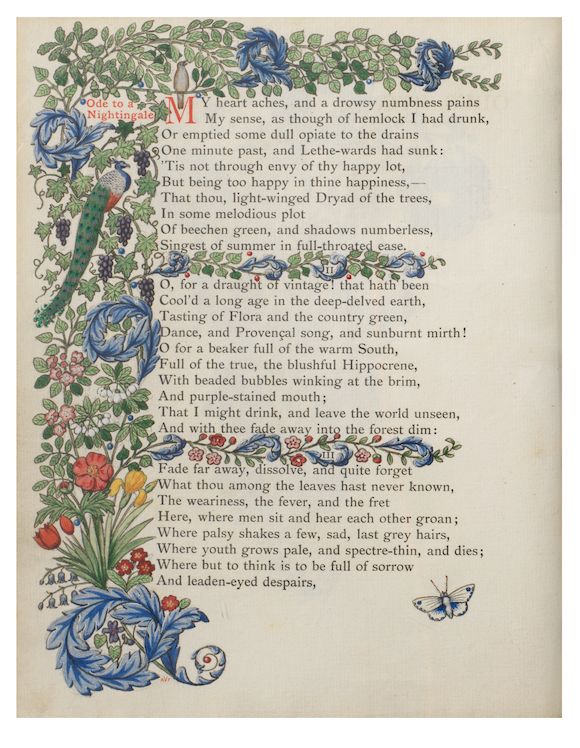 Ode to a
Nightingale
MY heart aches, and a drowsy numbness pains
My sense, as though of hemlock I had drunk,
Or emptied some dull opiate to the drains
One minute past, and Lethe-wards had sunk:
'Tis not through envy of thy happy lot,
But being too happy in thine happiness,—
That thou, light-winged Dryad of the trees,
In some melodious plot
Of beechen green, and shadows numberless,
Singest of summer in full-throated ease.
II
O, for a draught of vintage! that hath been
Cool'd a long age in the deep-delved earth,
Tasting of Flora and the country green,
Dance, and Provençal song, and sunburnt mirth!
O for a beaker full of the warm South,
Full of the true, the blushful Hippocrene,
With beaded bubbles winking at the brim,
And purple-stained mouth;
That I might drink, and leave the world unseen,
And with thee fade away into the forest dim:
III
Fade far away, dissolve, and quite forget
What thou among the leaves hast never known,
The weariness, the fever, and the fret
Here, where men sit and hear each other groan;
Where palsy shakes a few, sad, last grey hairs,
Where youth grows pale, and spectre-thin, and dies;
Where but to think is to be full of sorrow
And leaden-eyed despairs,